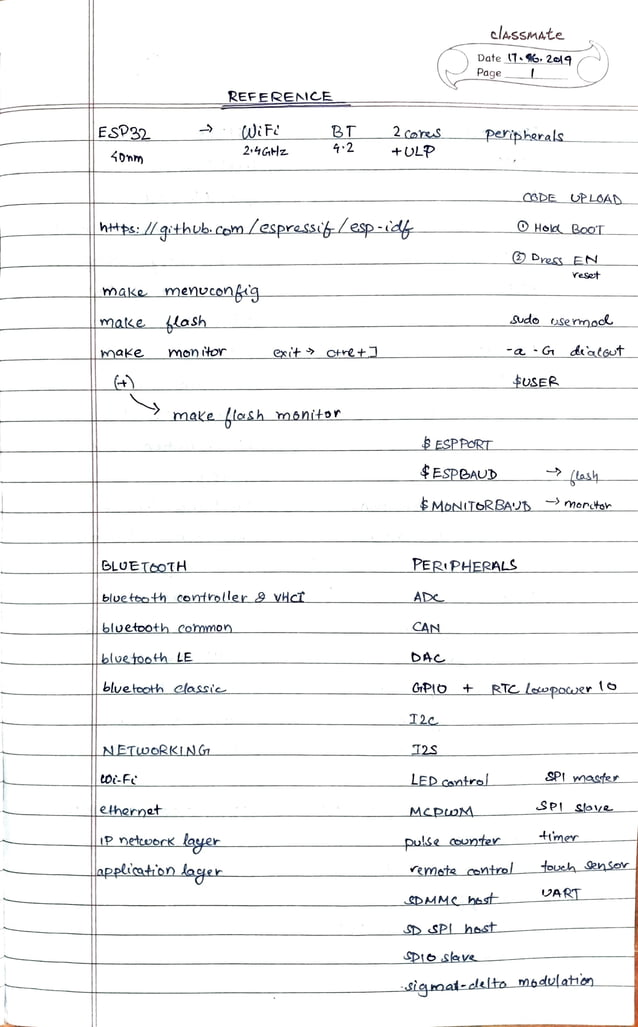 classmate
Date 17.06.2019
Page 1
REFERENCE
ESP32 → WiFi BT 2 cores peripherals
40nm 2.4GHz 4.2 + ULP
CODE UPLOAD
https://github.com/espressif/esp-idf ① Hold BOOT
② Press EN
reset
make menuconfig
make flash sudo usermod
make monitor exit → ctrl+] -a -G dialout
(+) $USER
make flash monitor
$ESPPORT
$ESPBAUD → flash
$MONITORBAUD → monitor
BLUETOOTH PERIPHERALS
bluetooth controller & VHCI ADC
bluetooth common CAN
bluetooth LE DAC
bluetooth classic GPIO + RTC lowpower IO
I2C
NETWORKING I2S
Wi-Fi LED control SPI master
ethernet MCPWM SPI slave
IP network layer pulse counter timer
application layer remote control touch sensor
SDMMC host UART
SD SPI host
SDIO slave
sigma-delta modulation